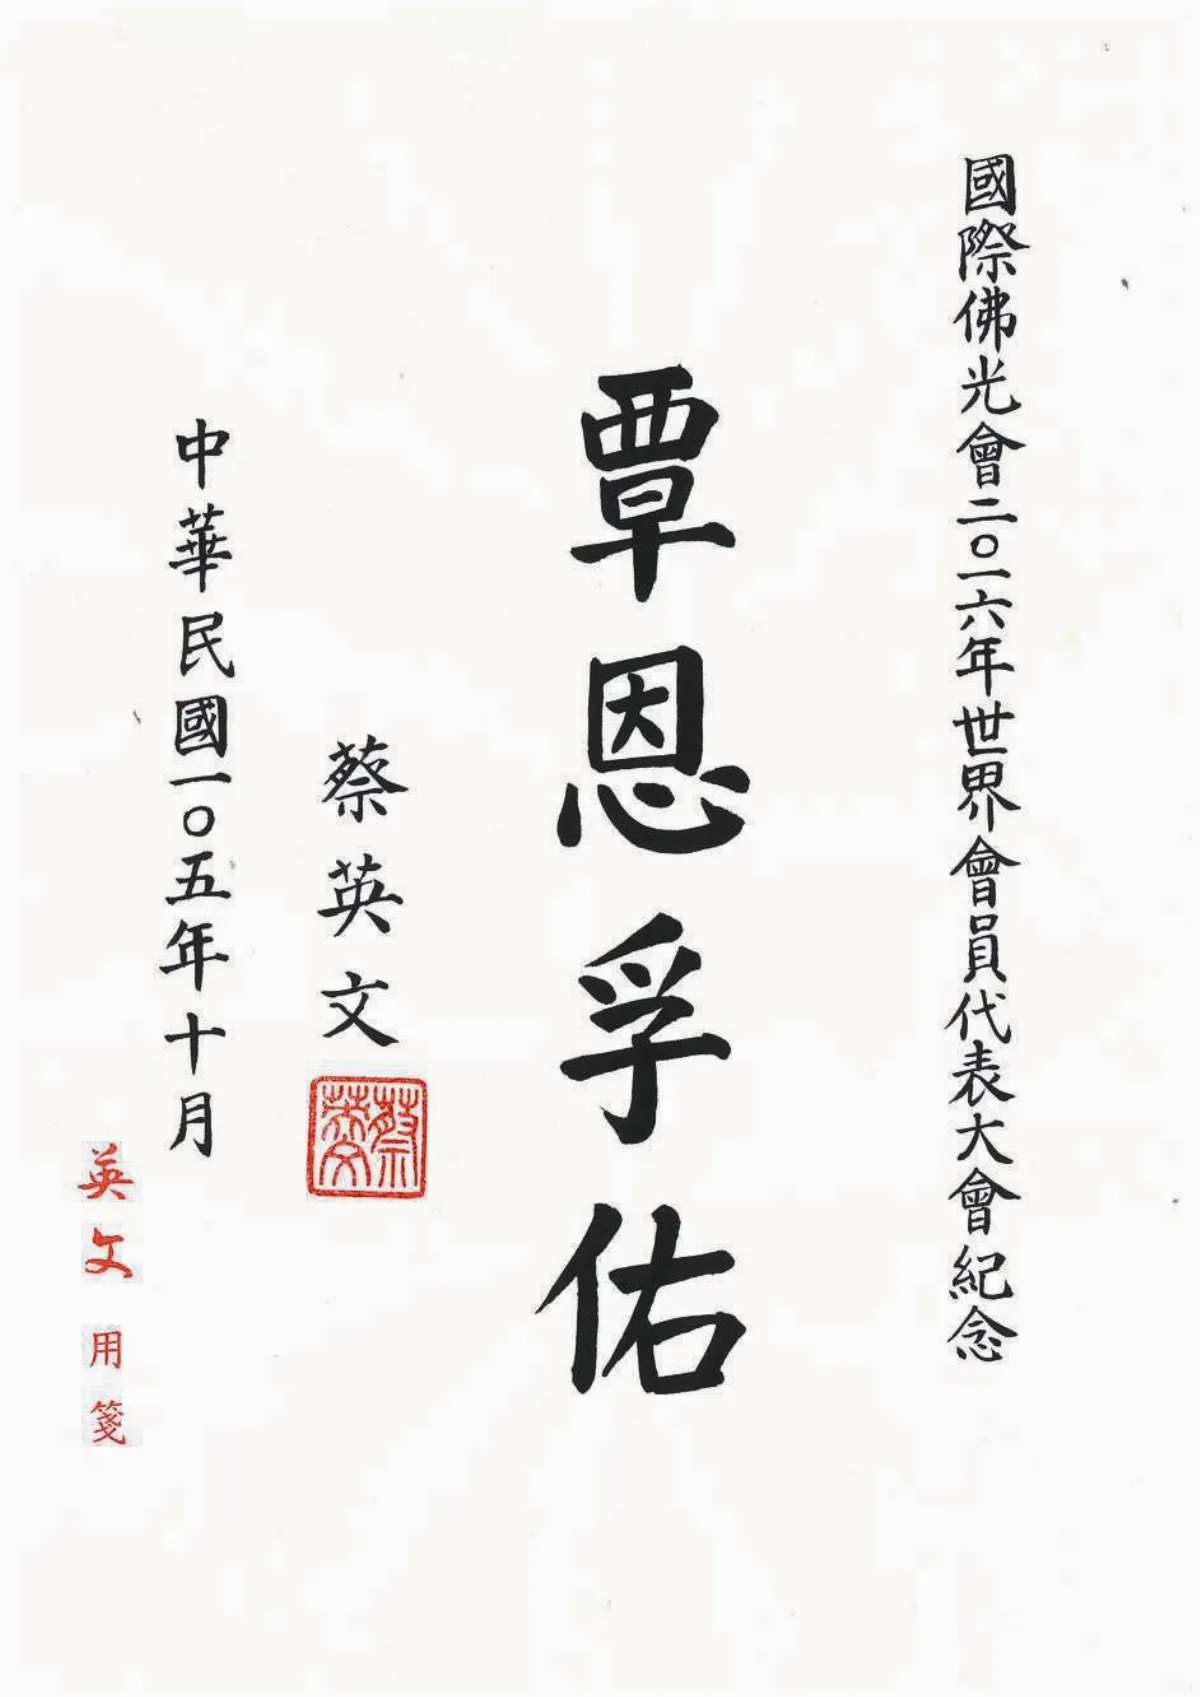 國際佛光會二〇一六年世界會員代表大會紀念
覃恩孚佑
蔡英文
蔡英文
中華民國一〇五年十月
英文用箋